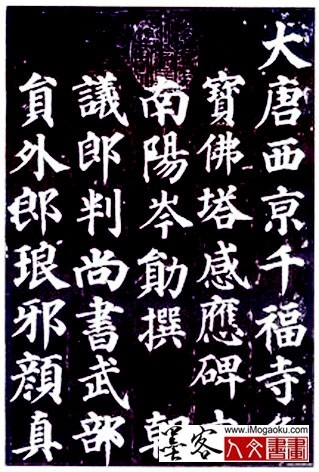 大唐西亰千福寺
寶佛塔感應碑
南陽岑勛撰 朝
議郎判尚書武部
貟外郎琅邪顏真
墨客
www.iMogaoku.com
人文書畫